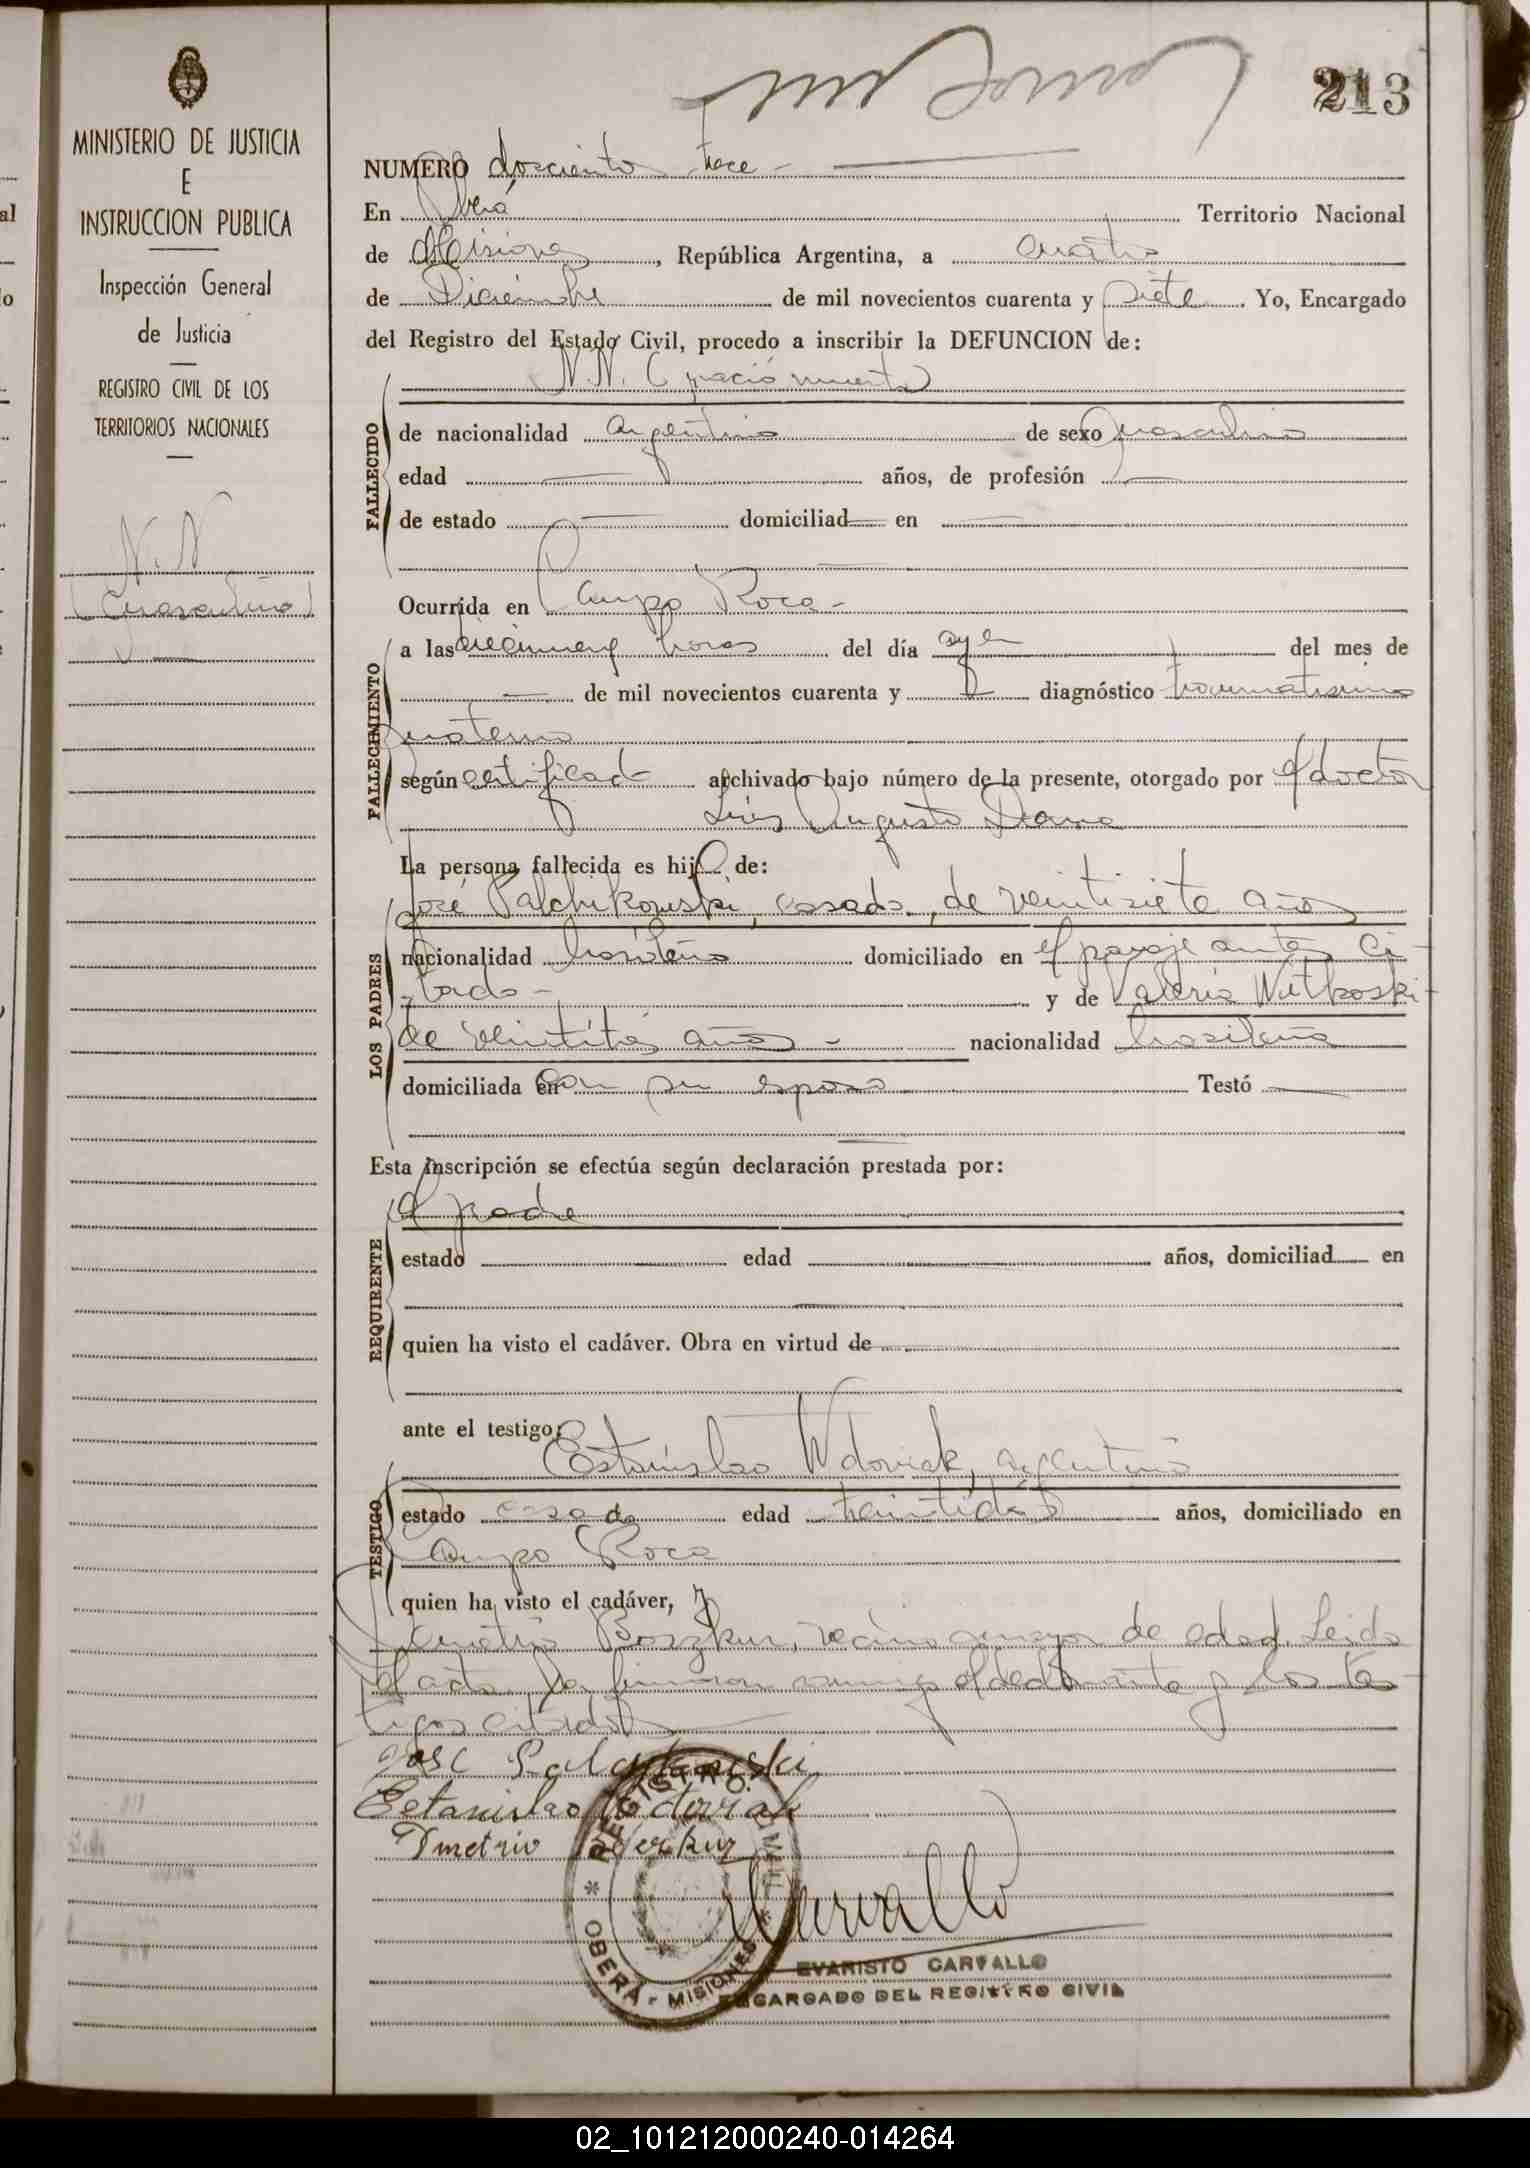 213
MINISTERIO DE JUSTICIA
E
INSTRUCCION PUBLICA
Inspección General
de Justicia
REGISTRO CIVIL DE LOS
TERRITORIOS NACIONALES
N. N
(masculino)
NUMERO doscientos trece
En Oberá Territorio Nacional
de Misiones, República Argentina, a cuatro
de Diciembre de mil novecientos cuarenta y siete. Yo, Encargado
del Registro del Estado Civil, procedo a inscribir la DEFUNCION de:
N. N. (nació muerto)
FALLECIDO
de nacionalidad argentino de sexo masculino
edad — años, de profesión —
de estado — domiciliad— en —
Ocurrida en Campo Roca -
FALLECIMIENTO
a las diecinueve horas del día ayer del mes de
— de mil novecientos cuarenta y — diagnóstico traumatismo
materno
según certificado archivado bajo número de la presente, otorgado por el doctor
Luis Augusto
La persona fallecida es hijo de:
José Palchikowski, casado, de veintisiete años
LOS PADRES
nacionalidad brasileño domiciliado en el paraje antes ci-
tado - y de Valeria Wutkoski
de veintitrés años - nacionalidad brasileña
domiciliada en con su esposo Testó —
Esta inscripción se efectúa según declaración prestada por:
el padre
REQUIRENTE
estado edad años, domiciliad— en
quien ha visto el cadáver. Obra en virtud de
ante el testigo:
Estanislao Wdoviak, argentino
TESTIGO
estado casado edad treintidós años, domiciliado en
Campo Roca
quien ha visto el cadáver, y
Demetrio Boszkur, vecino mayor de edad. Leida
el acta, la firmaron conmigo el declarante y los tes-
tigos citados
José
Estanislao Wdoviak
Dmetrio
REGISTRO CIVIL * OBERÁ - MISIONES *
Carvallo
EVARISTO CARVALLO
ENCARGADO DEL REGISTRO CIVIL
02_101212000240-014264